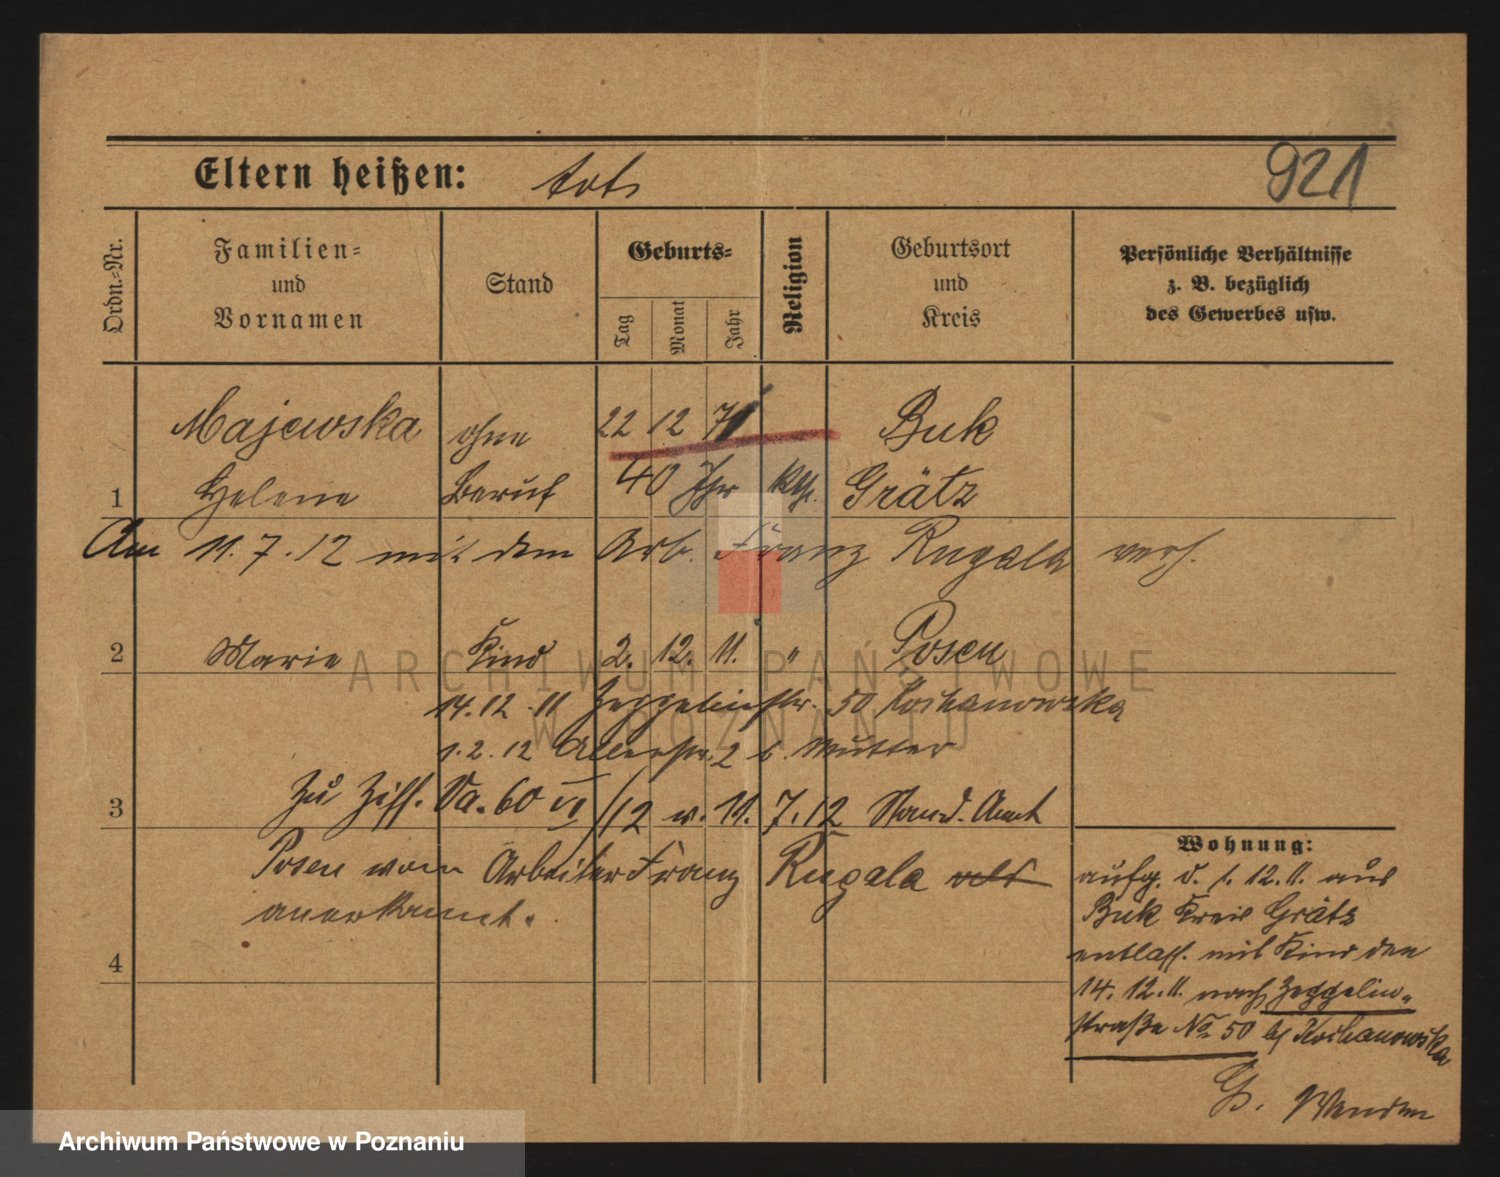 Eltern heißen: tot
921
Ordn.-Nr.
Familien-
und
Vornamen
Stand
Geburts-
Tag
Monat
Jahr
Religion
Geburtsort
und
Kreis
Persönliche Verhältnisse
z. B. bezüglich
des Gewerbes usw.
Majewska ohne 22 12 71 Buk
1 Helene Beruf 40 Jhr kth. Grätz
Am 11.7.12 mit dem Arb. Franz Rugala verh.
2 Marie Kind 2. 12. 11. " Posen
14.12.11 Zeppelinstr. 50 Kochanowska
1.2.12 2 b. Mutter
3 Zu Ziff. 60 VI/12 v. 11.7.12 Stand. Amt
Posen vom Arbeiter Franz Rugala
anerkannt.
4
Wohnung:
aufg. d. 1.12.11. aus
Buk Kreis Grätz
entlass. mit Kind den
14.12.11. nach Zeppelin-
straße No 50 bei Kochanowska
ARCHIWUM PAŃSTWOWE
W POZNANIU
Archiwum Państwowe w Poznaniu